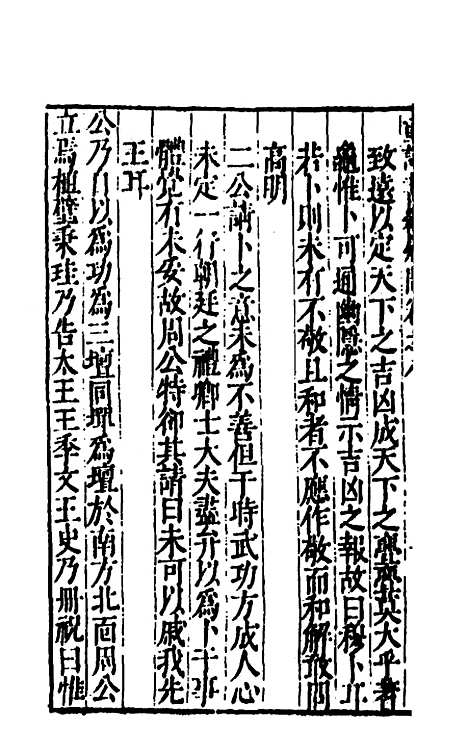 致遠以定天下之吉凶成天下之亹亹莫大乎蓍
龜惟卜可通幽隱之情示吉凶之報故曰穆卜耳
若卜則未有不敬且和者不應作敬而和解敢問
高明
二公請卜之意未為不善但于時武功方成人心
未定一行朝廷之禮卿士大夫盡弁以為卜于事
體覺有未妥故周公特卻其請曰未可以戚我先
王耳
公乃自以為功為三壇同墠為壇於南方北面周公
立焉植璧秉珪乃告太王王季文王史乃册祝曰惟